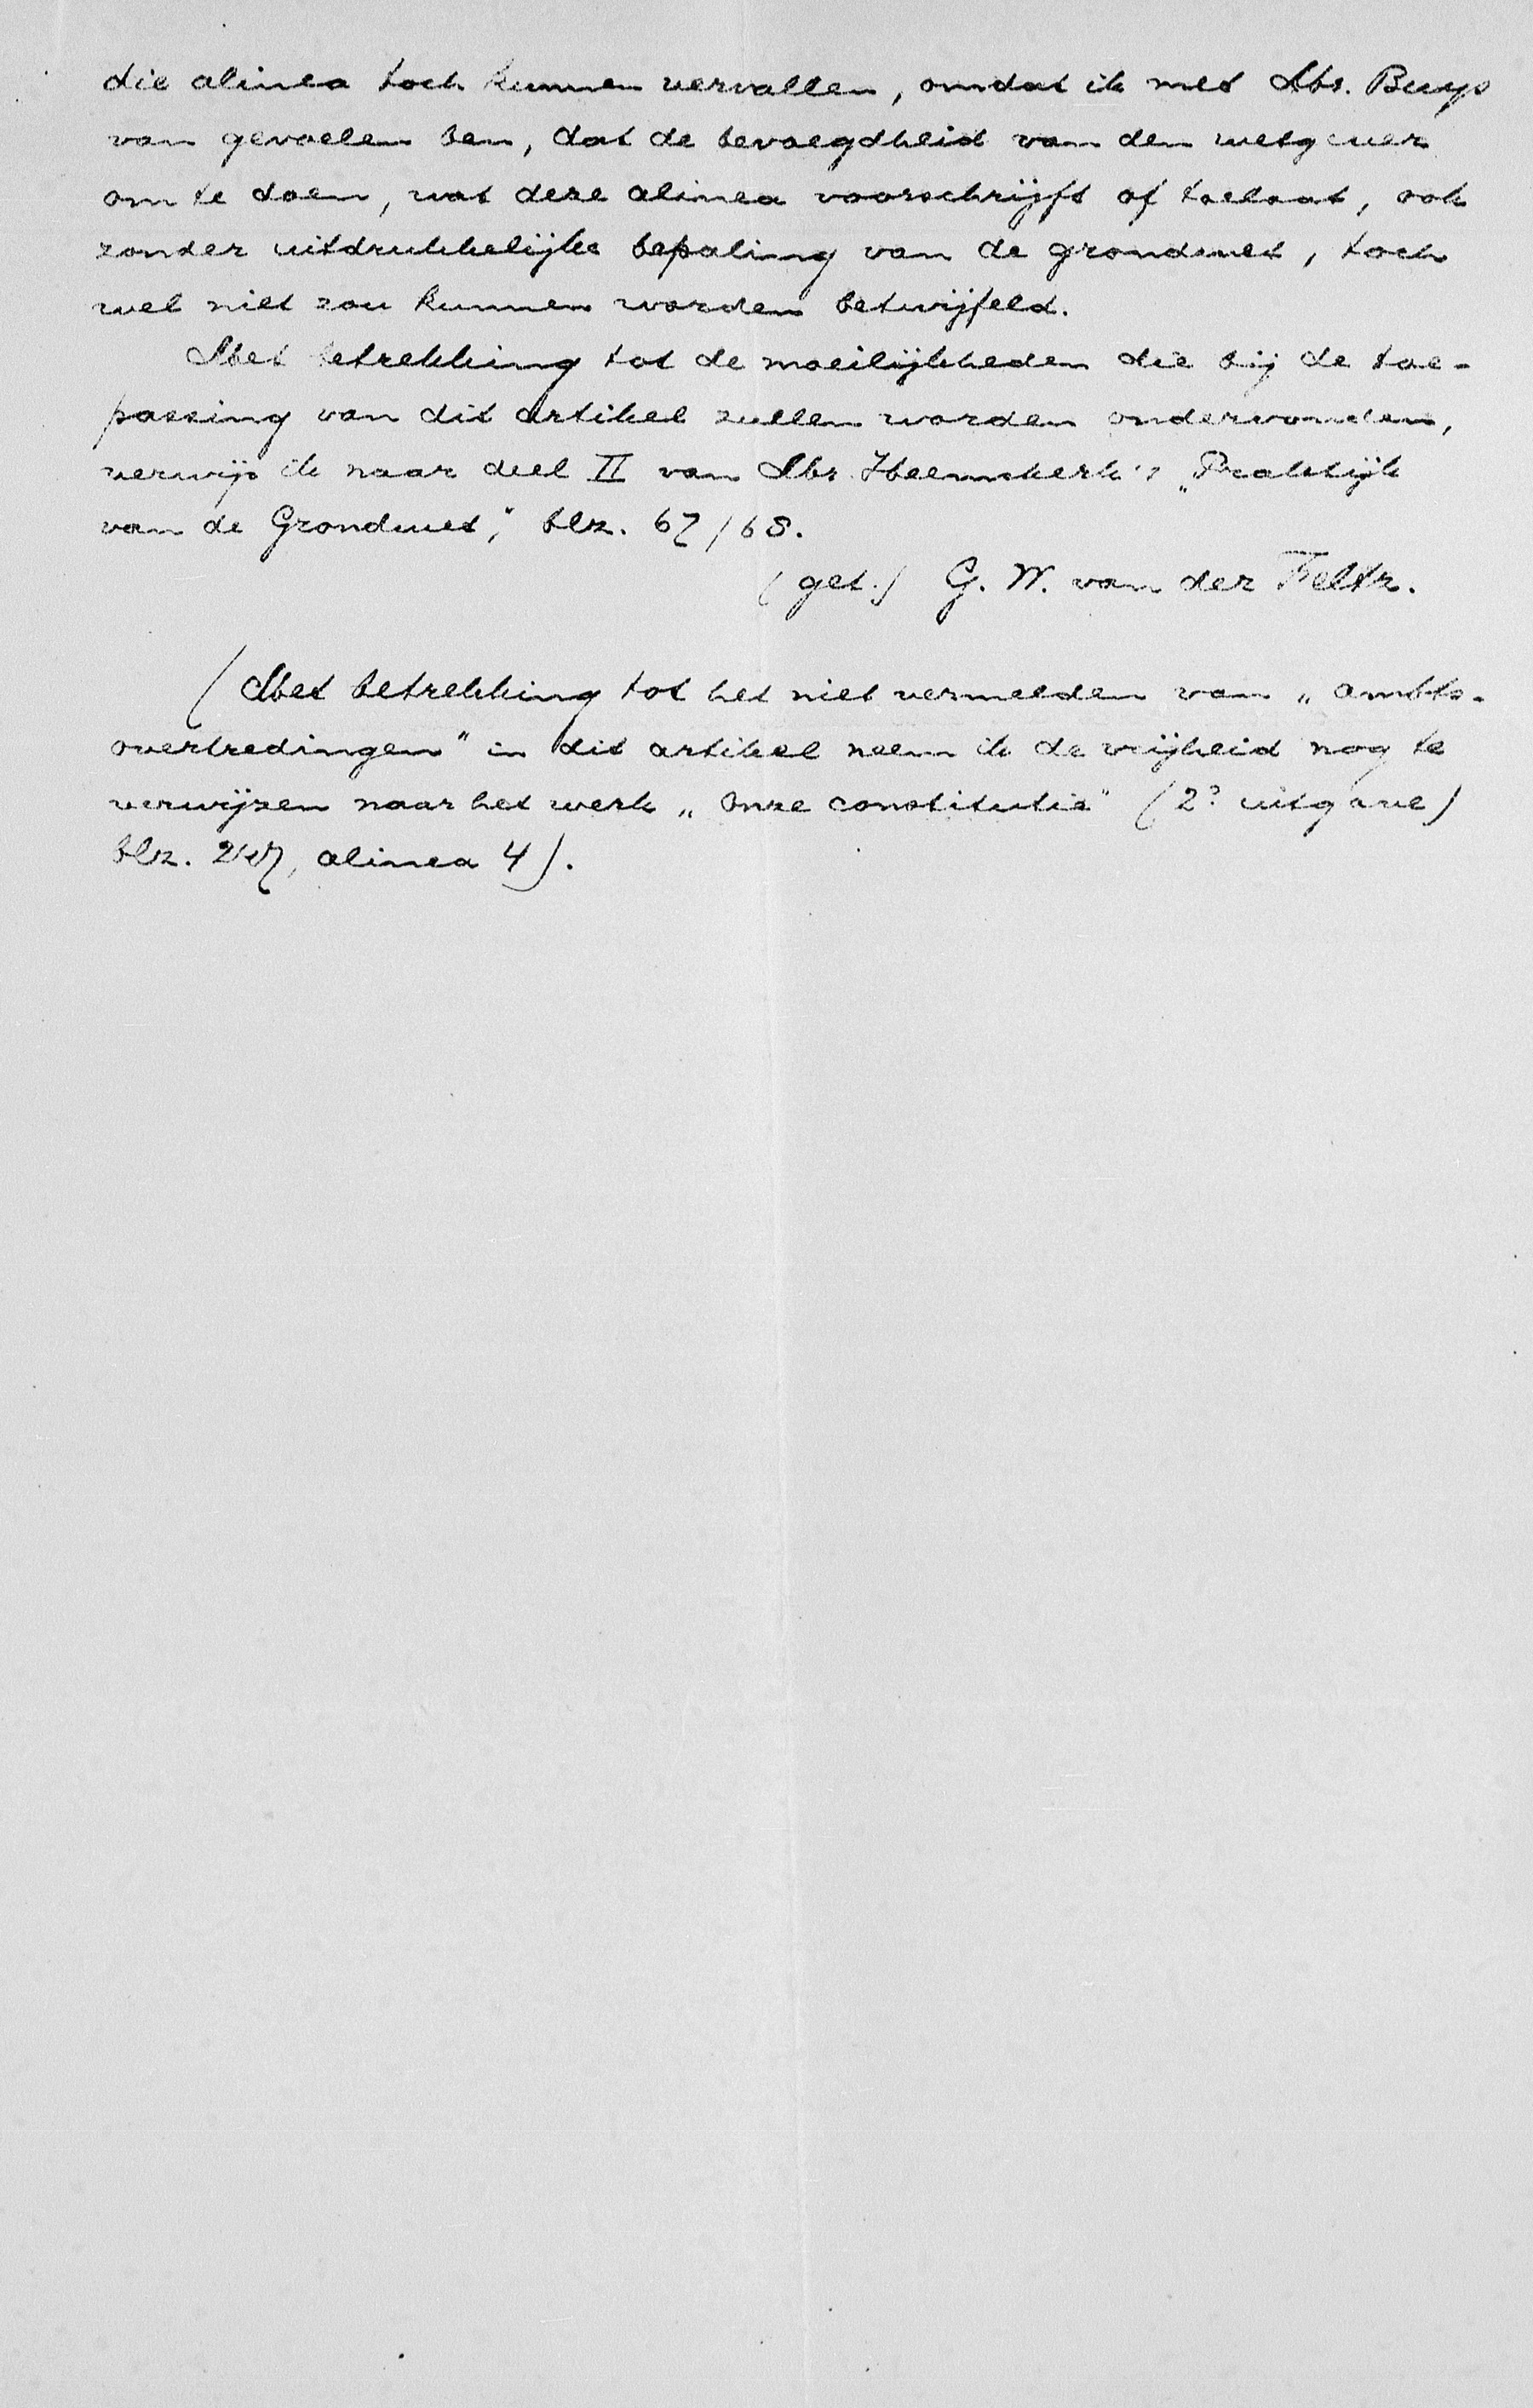 die alinea toch kunnen vervallen, omdat ik met Mr. Buys
van gevoelen ben, dat de bevoegdheid van den wetgever
om te doen, wat deze alinea voorschrijft of toelaat, ook
zonder uitdrukkelijke bepaling van de grondwet, toch
wel niet zou kunnen worden betwijfeld.
Met betrekking tot de moeilijkheden die bij de toe-
passing van dit artikel zullen worden ondervonden,
verwijs ik naar deel II van Mr. Heemskerk's „Praktijk
van de Grondwet," blz. 67/68.
(get.) G. W. van der Feltz.
(Met betrekking tot het niet vermelden van „ambts-
overtredingen" in dit artikel neem ik de vrijheid nog te
verwijzen naar het werk „Onze constitutie" (2e uitgave)
blz. , alinea 4).